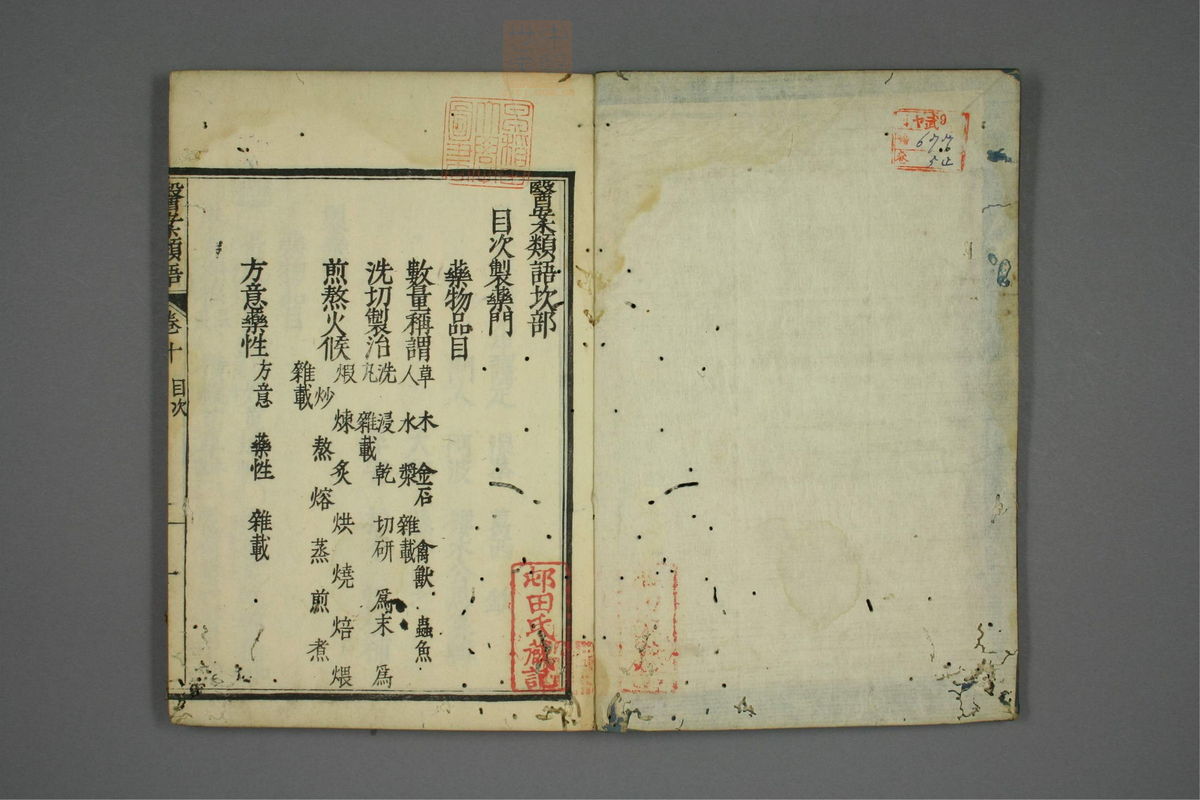 677
醫案類語坎部
目次製藥門
藥物品目
數量稱謂 草 木 金石 禽獸 蟲魚
人 水 漿 雜載
洗切製治 洗 浸 乾 切研 爲末 爲
丸 雜載
煎熬火候 煅 煉 炙 烘 燒 焙 煨
炒 熬 熔 蒸 煎 煮
雜載
方意藥性 方意 藥性 雜載
醫案類語 卷十 目次 一
邨田氏藏記